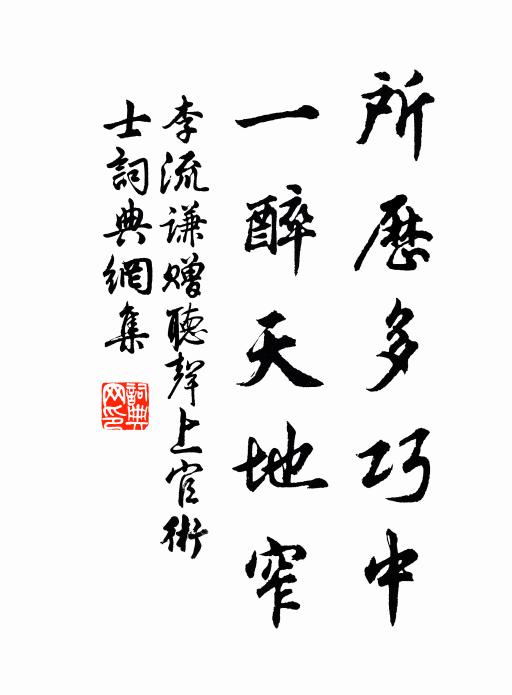 所歷多巧中
一醉天地窄
李流謙贈聽聲上官術
士詞典網集
詞典网印